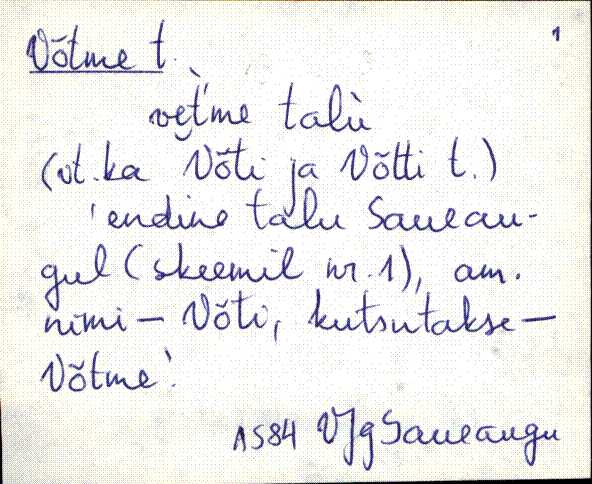 Võtme t. 1
ve̮t'me talù
(vt. ka Võti ja Võtti t.)
'endine talu Saueau-
gul (skeemil nr. 1), am.
nimi – Võti, kutsutakse –
Võtme'.
AS84 VJg Saueaugu